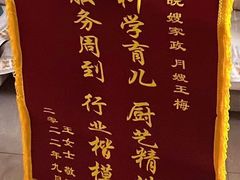 晓嫂家政 月嫂王梅
科学育儿 厨艺精
服务周到 行业楷模
王女士 敬
二零二二年九月